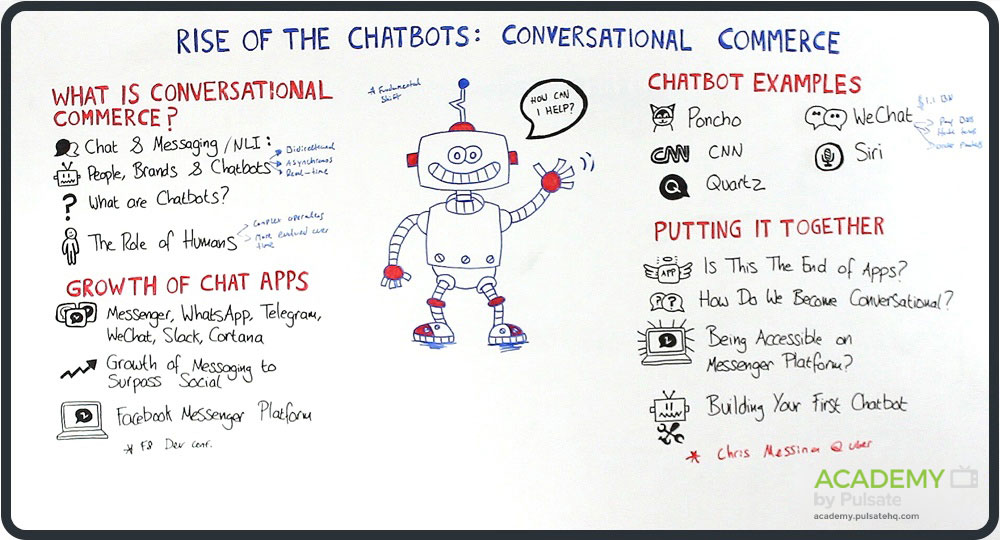 RISE OF THE CHATBOTS: CONVERSATIONAL COMMERCE
WHAT IS CONVERSATIONAL
COMMERCE?
Chat & Messaging / NLI:
People, Brands & Chatbots
Asynchronous
Real-time
What are Chatbots?
The Role of Humans
Complex operators
More evolved over
time
GROWTH OF CHAT APPS
Messenger, WhatsApp, Telegram,
WeChat, Slack, Cortana
Growth of Messaging to
Surpass Social
Facebook Messenger Platform
* F8 Dev conf.
* Fundamental
Shift
HOW CAN
I HELP?
CHATBOT EXAMPLES
Poncho
CNN
CNN
Q
Quartz
WeChat
Siri
PUTTING IT TOGETHER
APP
Is This The End of Apps?
? ?
How Do We Become Conversational?
Being Accessible on
Messenger Platform?
Building Your First Chatbot
* Chris Messina @ Uber
ACADEMY
by Pulsate
academy.pulsatehq.com